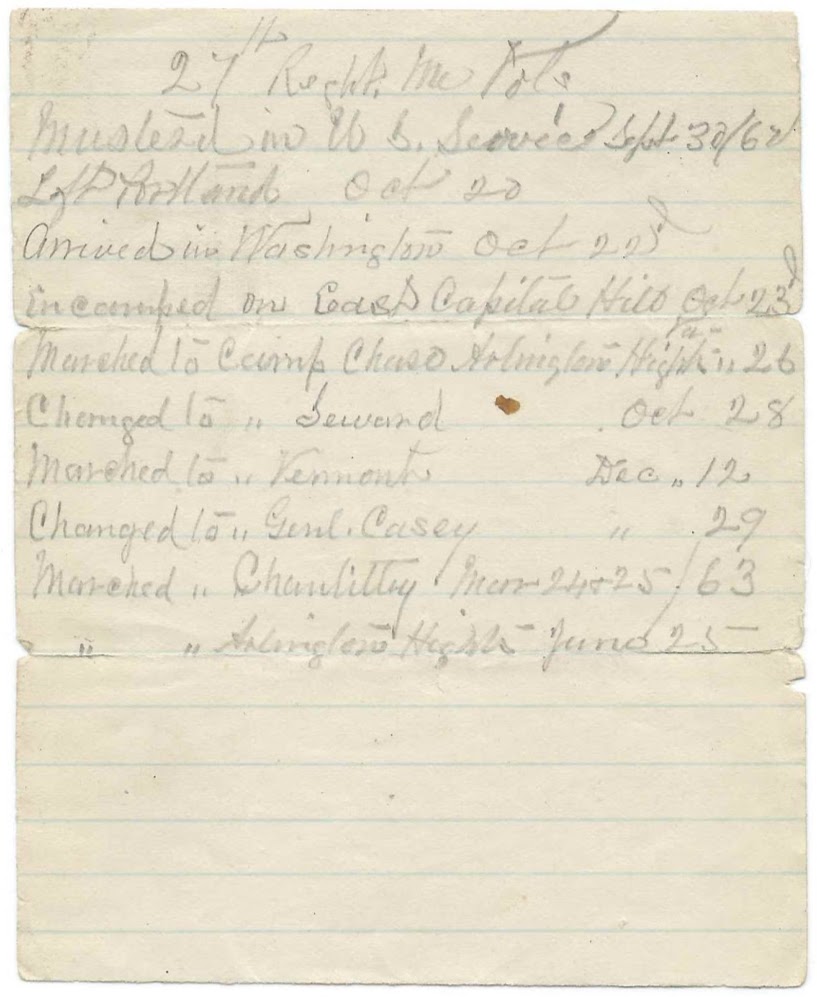 27th Regt. Me Vols
Mustered in U S. Service Sept 30/62
Left Portland Oct 20
Arrived in Washington Oct 22d
Encamped on East Capital Hill Oct 23d
Marched to Camp Chase Arlington Hights Va. " 26
Changed to " Seward Oct 28
Marched to " Vermont Dec " 12
Changed to " Genl. Casey " 29
Marched " Chantilly Mar 24 & 25 / 63
" " Arlington Hights June 25